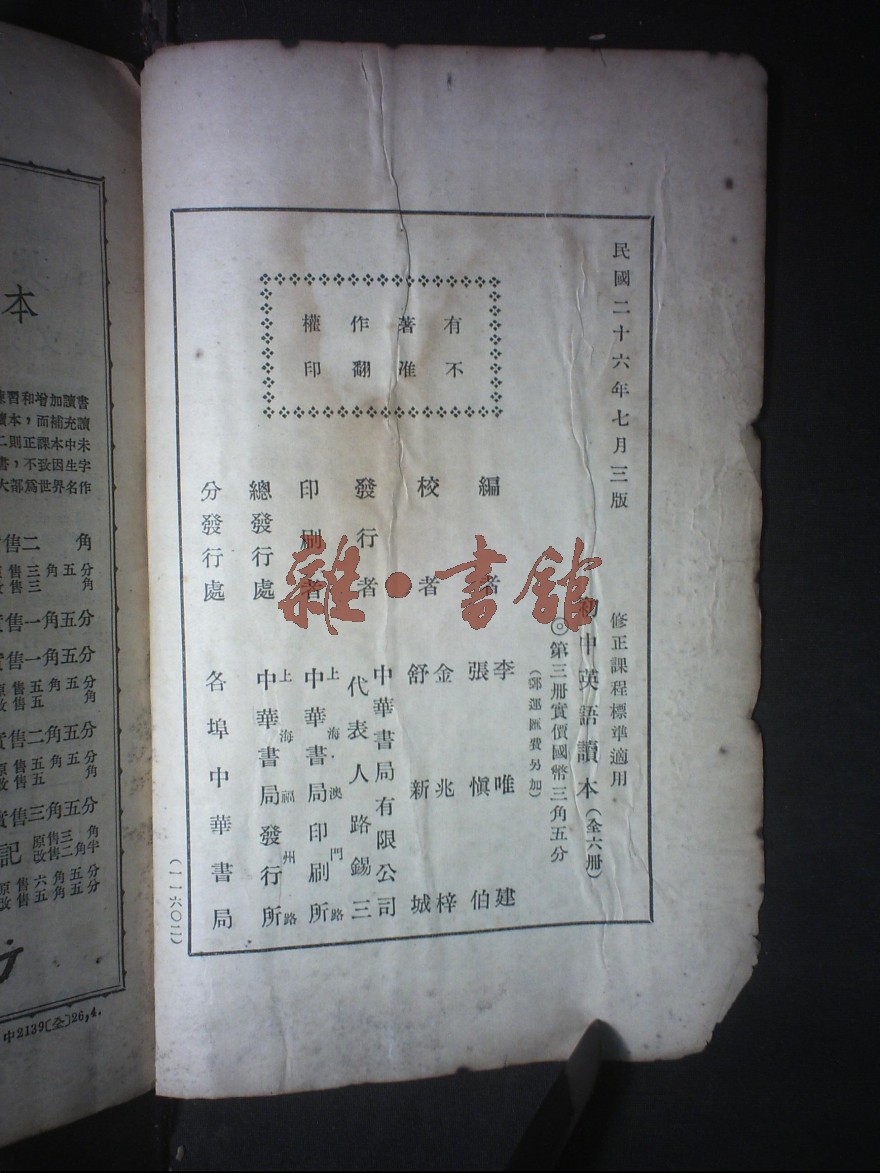 民國二十六年七月三版
修正課程標準適用
初中英語讀本（全六册）
◎第三册實價國幣三角五分
（郵運匯費另加）
有著作權
不准翻印
編者 李唯建
張愼伯
校者 金兆梓
舒新城
發行者 中華書局有限公司
代表人路錫三
印刷者 上海澳門路
中華書局印刷所
總發行處 上海福州路
中華書局發行所
分發行處 各埠中華書局
（一一六〇二）
雜·書館
本
練習和增加讀書
讀本，而補充讀
二則正課本中未
書，不致因生字
大部爲世界名作
售二角
售三角五分
售三角
實售一角五分
實售一角五分
原售五角五分
改售五角
實售二角五分
原售五角五分
改售五角
實售三角五分
記 原售三角
改售二角半
原售六角五分
改售五角五分
行
中2139〔全〕26,4.